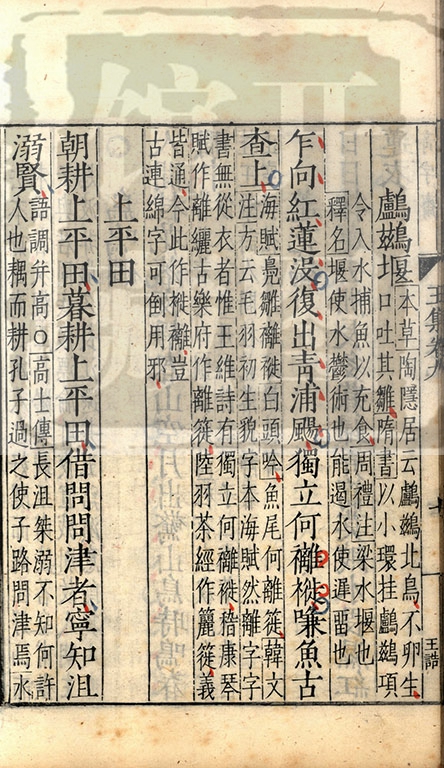 鸕鷀堰
本草陶隱居云鸕鷀北鳥不卵生
口吐其雛隋書以小環挂鸕鷀項
令入水捕魚以充食周禮注梁水堰也
釋名堰使水鬱術也能遏水使遲畱也
乍向紅蓮沒復出青浦颺獨立何䙰褷魚古
查上
海賦鳧雛離褷白頭吟魚尾何離簁韓文
注方云毛羽初生貌字本海賦然離字字
書無從衣者惟王維詩有獨立何䙰褷嵇康琴
賦作離纚古樂府作離簁陸羽茶經作籭簁義
皆通今此作褷䙰豈
古連綿字可倒用邪
上平田
朝耕上平田暮耕上平田借問問津者寧知沮
溺賢
詰調并高○高士傳長沮桀溺不知何許
人也耦而耕孔子過之使子路問津焉水